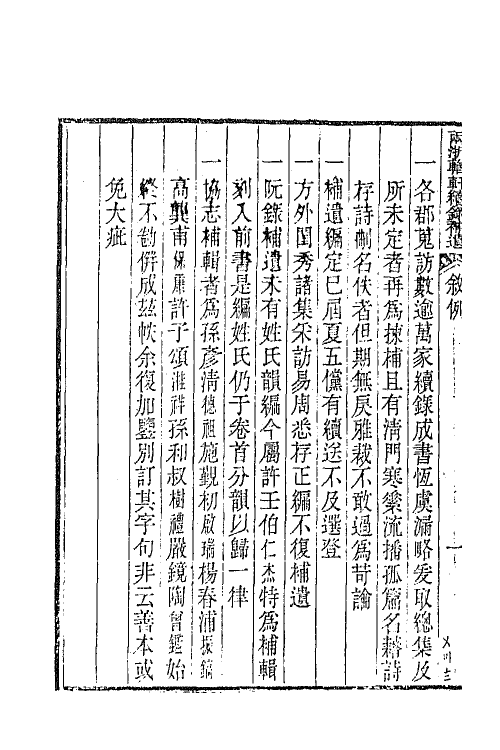 兩浙輶軒續錄補遺 敘例
一各郡蒐訪數逾萬家續錄成書恆虞漏略爰取總集及
所未定者再爲揀補且有淸門寒欒流播孤篇名藉詩
存詩刪名佚者但期無戾雅裁不敢過爲苛論
一補遺編定已屆夏五儻有續送不及選登
一方外閨秀諸集采訪易周悉存正編不復補遺
一阮錄補遺未有姓氏韻編今屬許壬伯仁杰特爲補輯
刻入前書是編姓氏仍于卷首分韻以歸一律
一協志補輯者爲孫彥淸德祖施覲初啟瑞楊春浦振鎬
高龔甫保康許子頌溎祥孫和叔樹禮嚴鏡陶曾鑑始
終不勌倂成茲帙余復加鑒別訂其字句非云善本或
免大疵